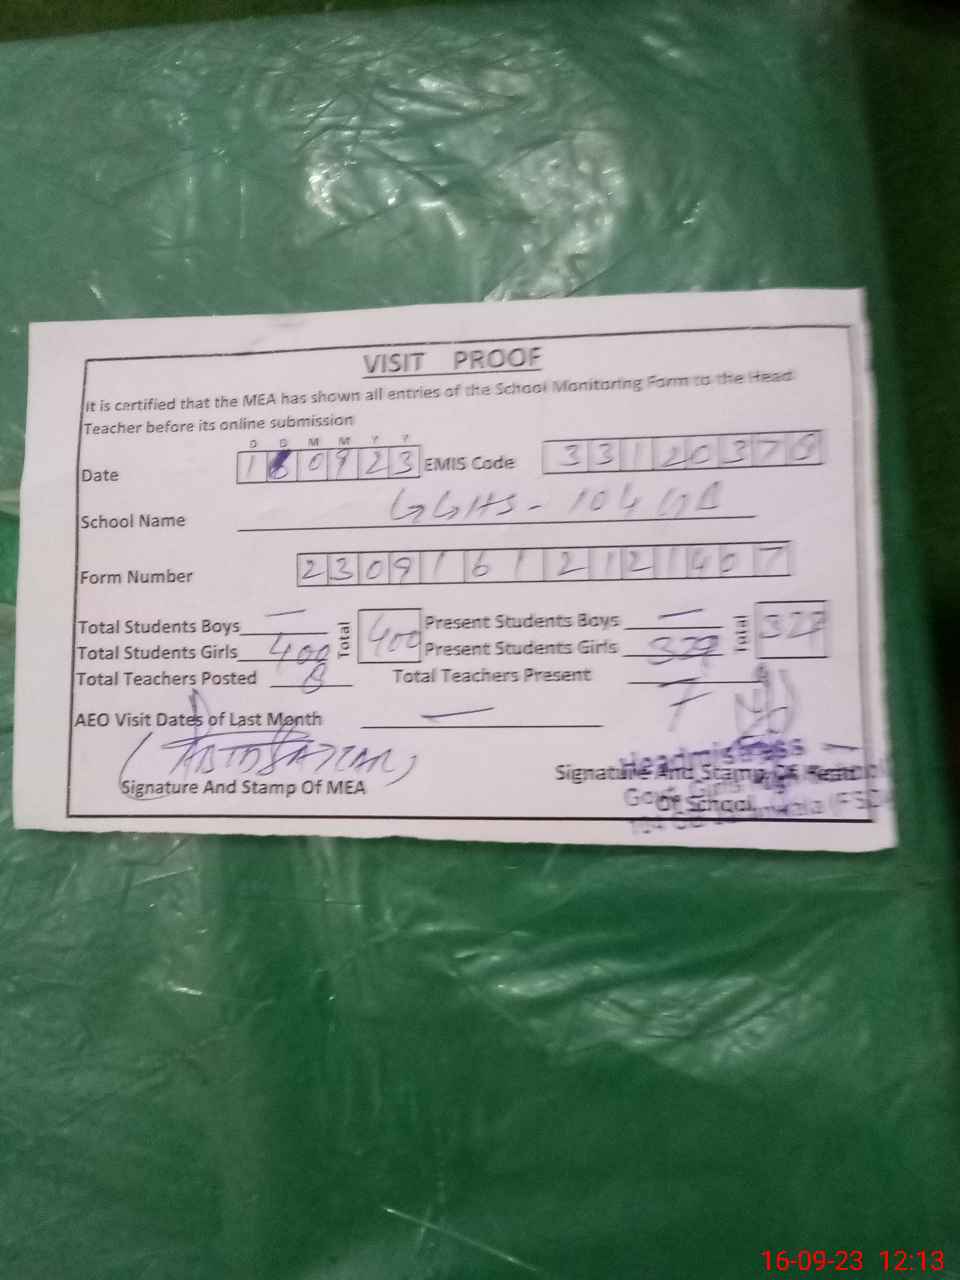 VISIT PROOF
It is certified that the MEA has shown all entries of the School Monitoring Form to the Head
Teacher before its online submission
D D M M Y Y
Date 160923 EMIS Code 33120378
School Name GGHS - 104 GB
Form Number 23091612121407
Total Students Boys — Total 400 Present Students Boys — Total 327
Total Students Girls 400 Present Students Girls 327
Total Teachers Posted 8 Total Teachers Present 7
AEO Visit Dates of Last Month —
Signature And Stamp Of MEA
Headmistress
Signature And Stamp Of Head
Govt. Girls
Of School
104 GB
16-09-23 12:13